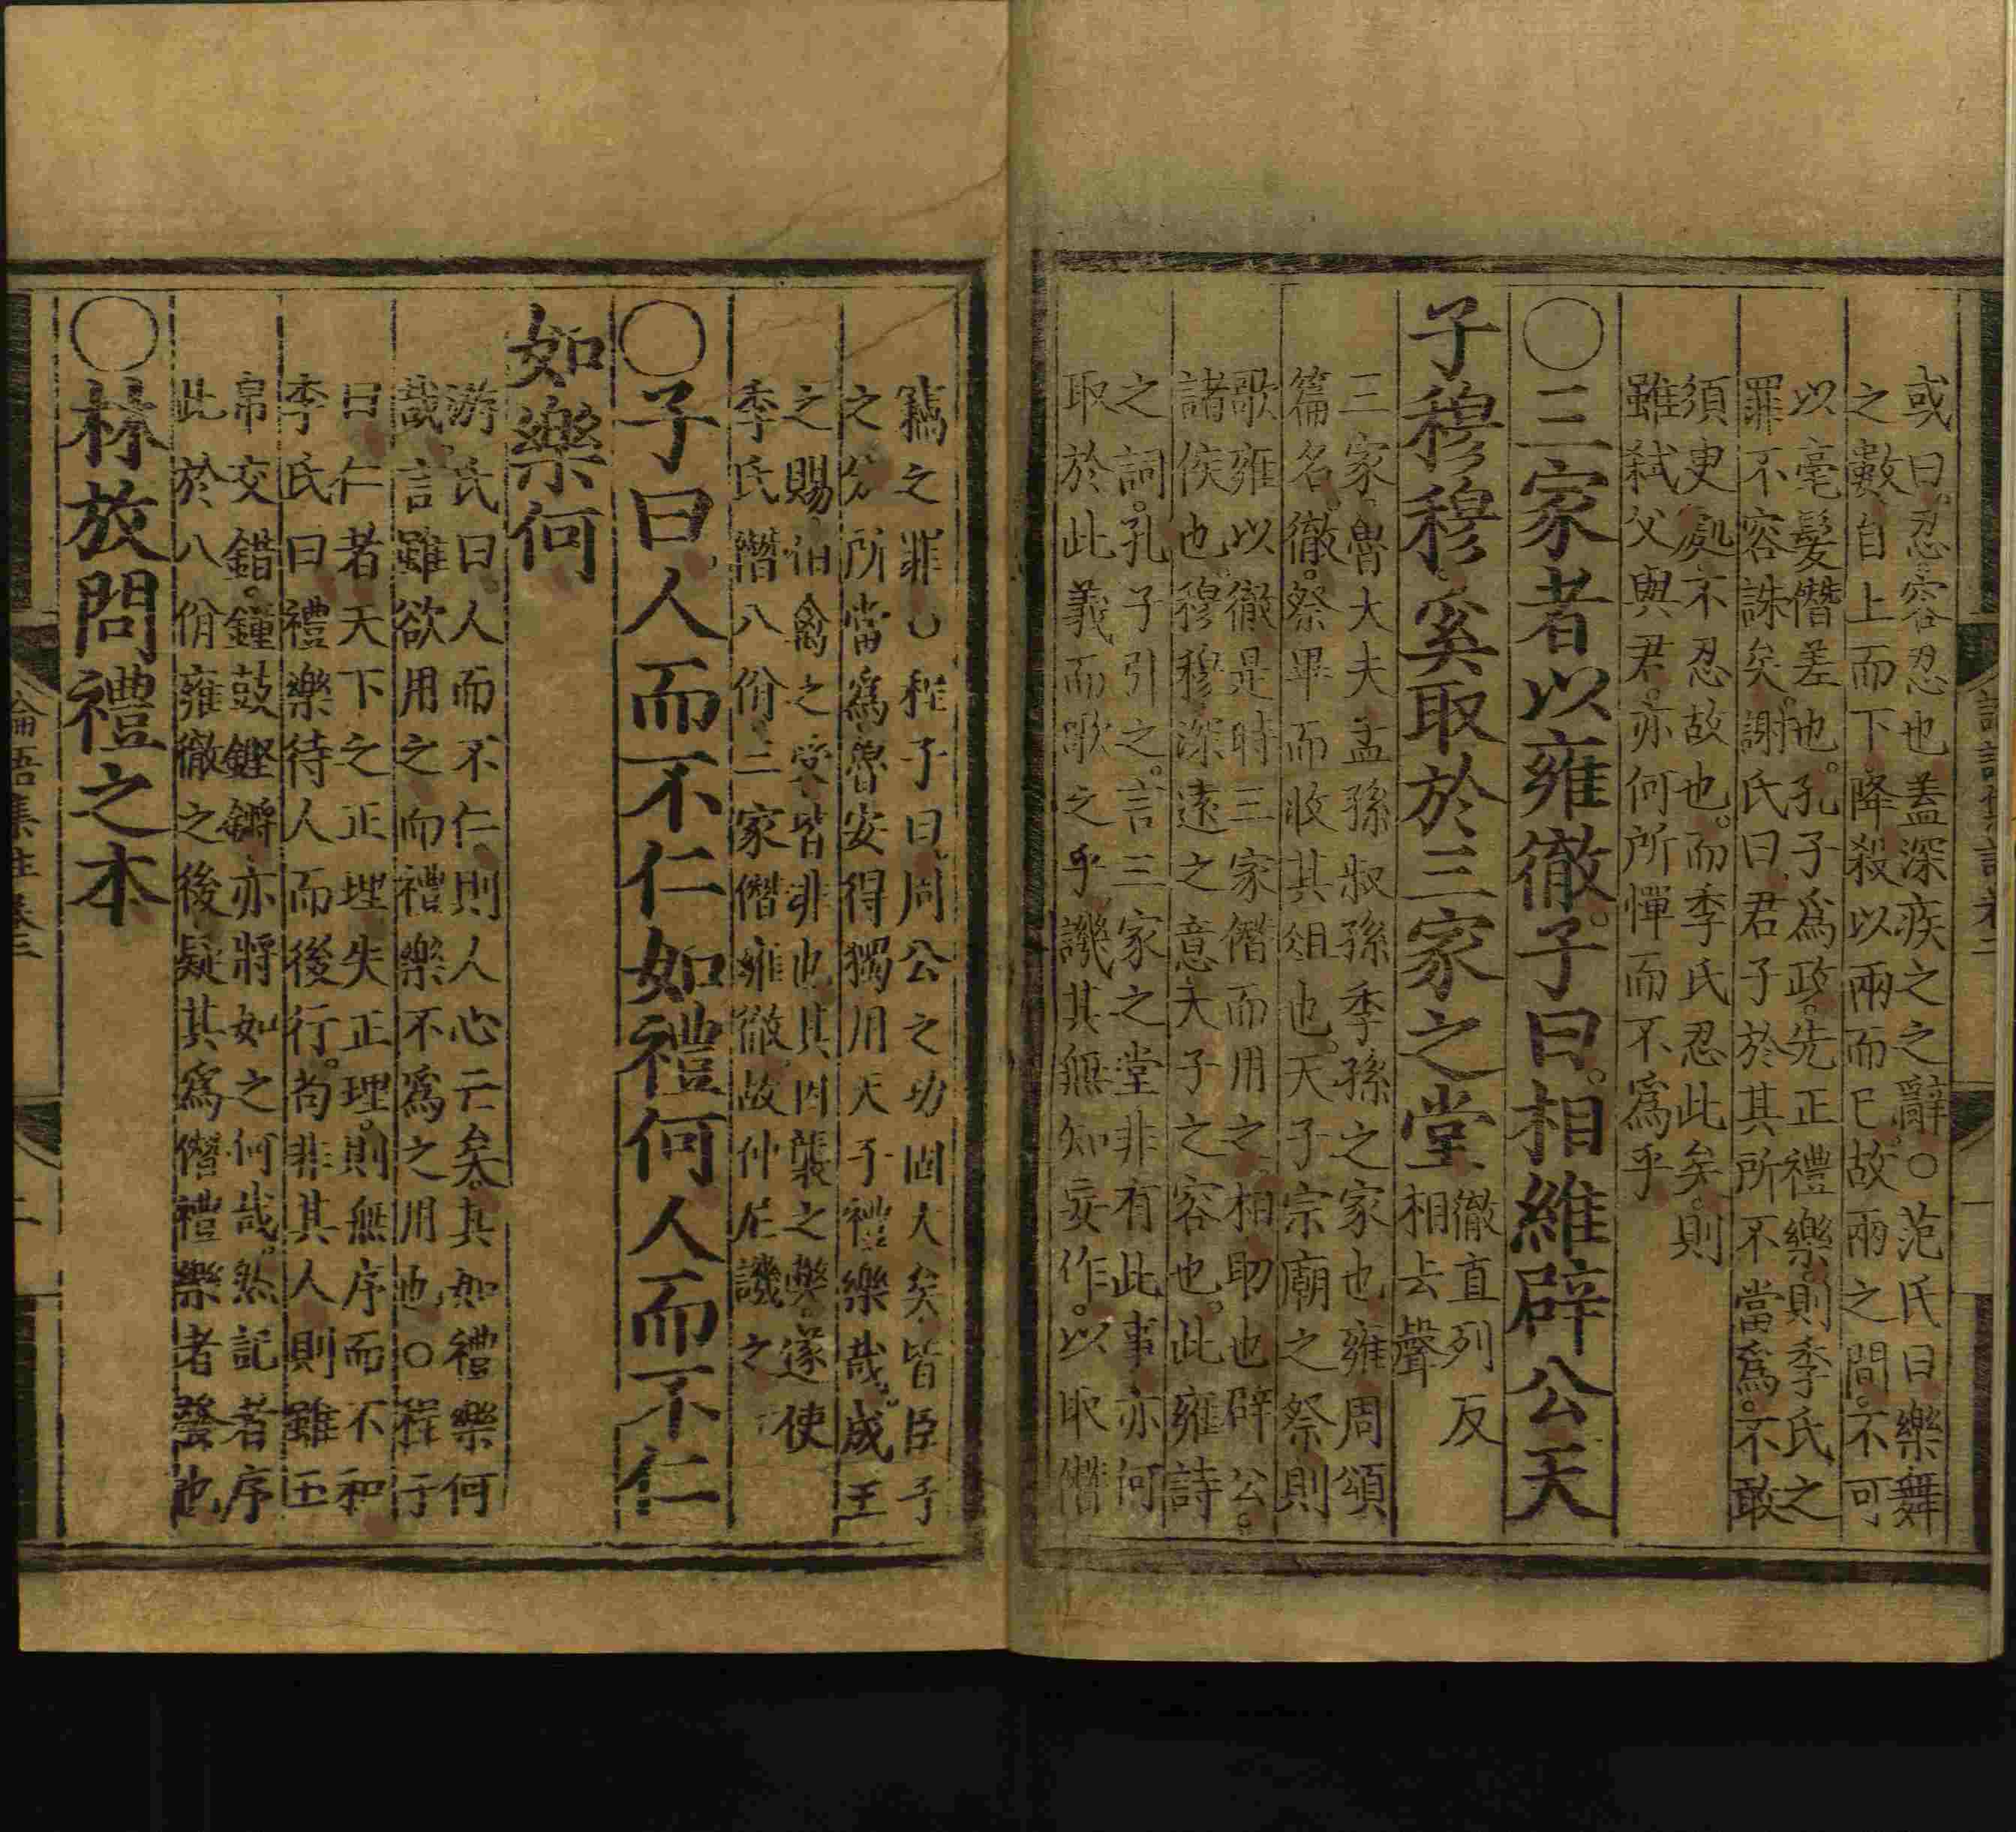 或曰。忍容忍也蓋深疾之之辭。○范氏曰樂舞
之數自上而下。降殺以兩而已故兩之間。不可
以毫髮僭差也。孔子爲政。先正禮樂。則季氏之
罪不容誅矣。謝氏曰君子於其所不當爲。不敢
須臾處不忍故也。而季氏忍此矣。則
雖弑父與君。亦何所憚而不爲乎
○三家者以雍徹。子曰。相維辟公天
子穆穆。奚取於三家之堂
徹直列反
相去聲
三家。魯大夫孟孫叔孫季孫之家也雍周頌
篇名。徹。祭畢而收其俎也。天子宗廟之祭則
歌雍以徹。是時三家僭而用之。相助也辟公。
諸侯也。穆穆。深遠之意。天子之容也。此雍詩
之詞。孔子引之。言三家之堂非有此事亦何
取於此義而歌之乎。譏其無知妄作。以取僭
竊之罪○程子曰。周公之功固大矣。皆臣子
之分所當爲。魯安得獨用天子禮樂哉。成王
之賜。伯禽之受。皆非也。其因襲之弊。遂使
季氏僭八佾。三家僭雍徹。故仲尼譏之
○子曰。人而不仁如禮何人而不仁
如樂何
游氏曰人而不仁則人心亡矣。其如禮樂何
哉。言雖欲用之而禮樂不爲之用也。○程子
曰仁者天下之正理失正理。則無序而不和
李氏曰禮樂待人而後行。苟非其人則雖玉
帛交錯。鐘鼓鏗鏘亦將如之何哉。然記者序
此於八佾雍徹之後疑其爲僭禮樂者發也
○林放問禮之本
論語集註卷二
二